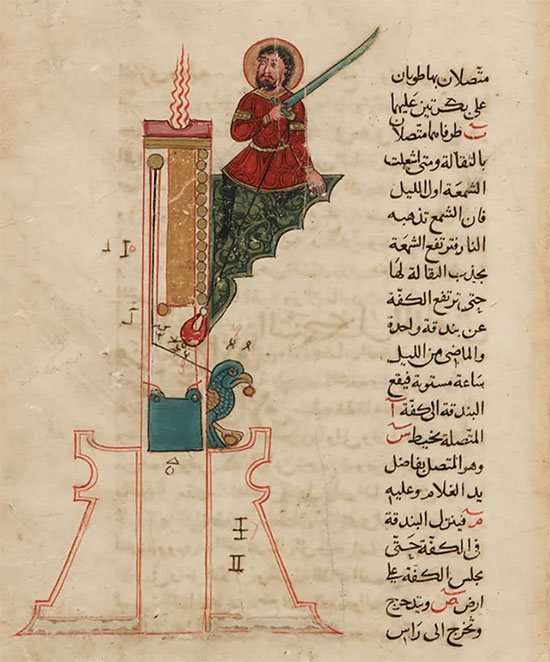 متصلان بها طويان
على بكرتين عليهما
طرفاهما متصلان
بالثقالة ومتى اشعلت
الشمعة اول الليل
فان الشمع تذهبه
النار فترتفع الشمعة
بجذب الثقالة لها
حتى ترتفع الكفة
عن بندقة واحدة
والماضى من الليل
ساعة مستوية فيقع
البندقة الى كفة آ
المتصلة بخيط س
وهو المتصل بفاضل
يد الغلام وعليه
فينزل البندقة
فى الكفة حتى
يجلس الكفة على
ارض ص ويتدحرج
وتخرج الى راس